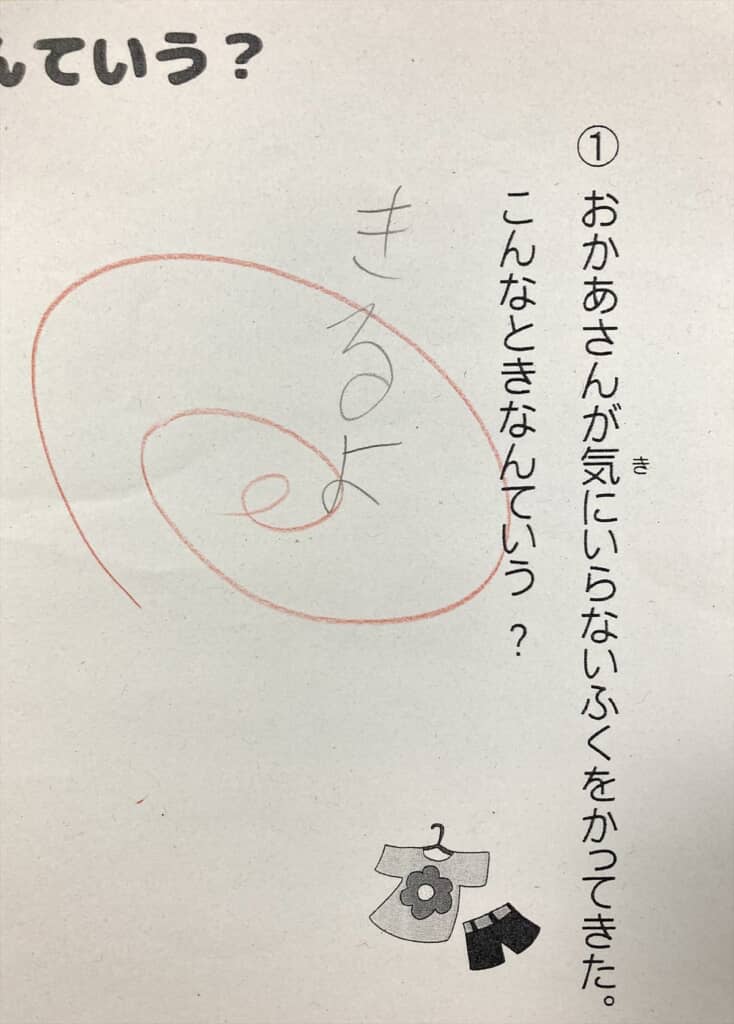 んていう?
① おかあさんが気にいらないふくをかってきた。
き
こんなときなんていう?
きるよ